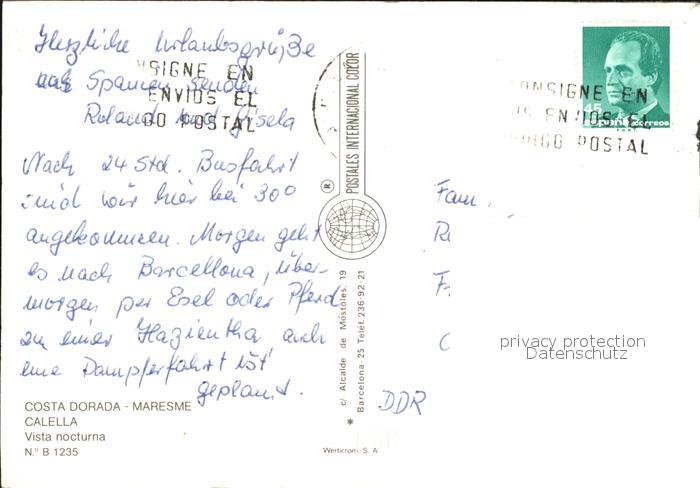 Herzliche Urlaubsgrüße
aus Spanien senden
Roland und Gisela
Nach 24 Std. Busfahrt
sind wir hier bei 30°
angekommen. Morgen geht
es nach Barcellona, über-
morgen per Esel oder Pferd
zu einer Hazientha auch
eine Dampferfahrt ist
geplant.
COSTA DORADA - MARESME
CALELLA
Vista nocturna
N.º B 1235
NSIGNE EN
ENVIOS EL
GO POSTAL
POSTALES INTERNACIONAL COLOR
®
c/ Alcalde de Móstoles, 19
Barcelona - 25 Teléf. 236 92 21
Werticrom, S. A
ONSIGNE EN
US ENVIOS EL
DIGO POSTAL
45
España correos
Fam.
DDR
privacy protection
Datenschutz